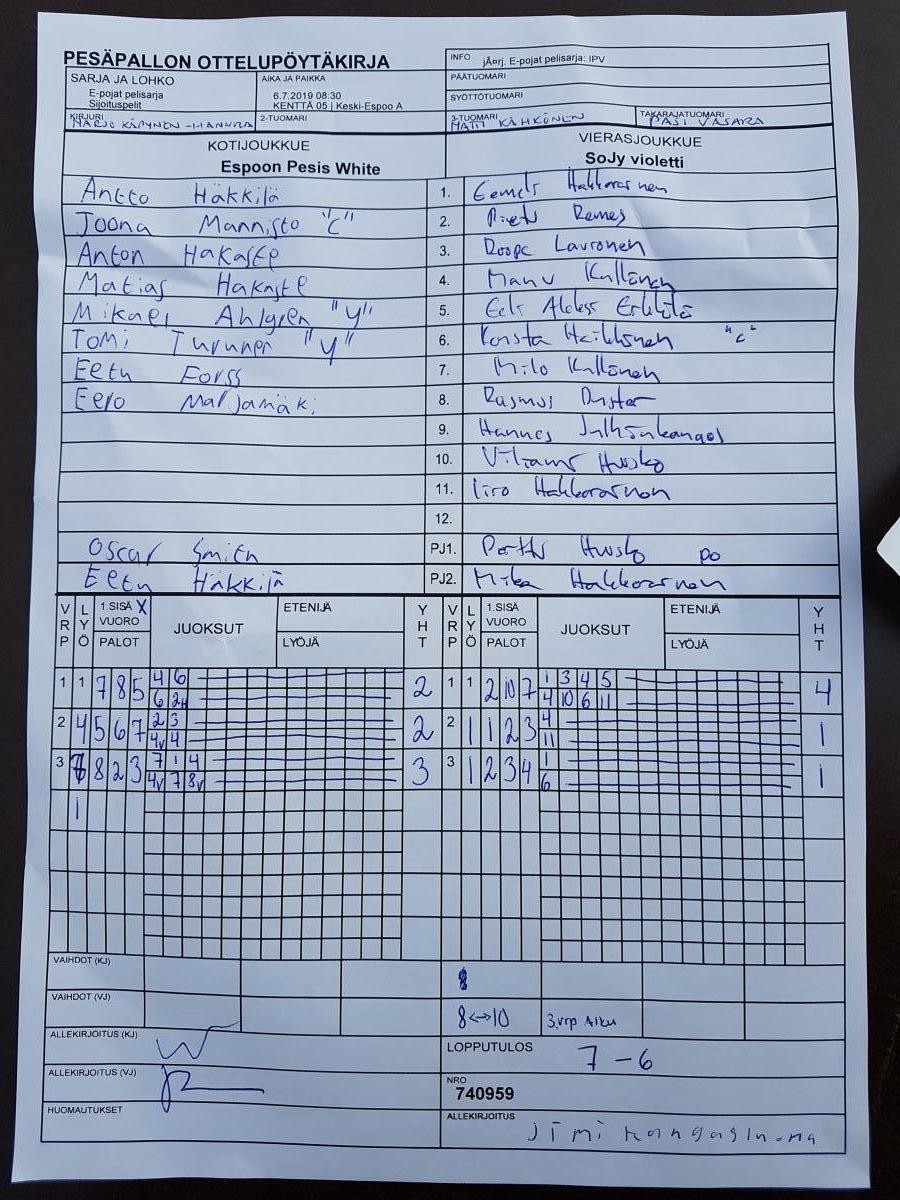 PESÄPALLON OTTELUPÖYTÄKIRJA
INFO jÃ¤rj. E-pojat pelisarja: IPV
SARJA JA LOHKO
E-pojat pelisarja
Sijoituspelit
AIKA JA PAIKKA
6.7.2019 08:30
KENTTÄ 05 | Keski-Espoo A
PÄÄTUOMARI
SYÖTTÖTUOMARI
KIRJURI
2-TUOMARI
3-TUOMARI MATTI KÄHKÖNEN
TAKARAJATUOMARI PASI VASARA
KOTIJOUKKUE
Espoon Pesis White
VIERASJOUKKUE
SoJy violetti
Antto Häkkilä 1.
Joona Mannisto "C" 2. Remes
Anton Hakaste 3. Roope Lauronen
Matias Hakaste 4. Manu Kullönen
Mikael Ahlgren "V" 5. Erkkilä
Tomi Turunen "V" 6. Konsta Heikkinen "C"
Eetu Forss 7. Milo Kullönen
Eero Marjamäki 8. Rasmus
9. Hannes
10. Husko
11. Iiro
12.
Oscar Smith PJ1. Pertti Husko po
Eetu Häkkilä PJ2. Mika
VRP LYÖ 1.SISÄ X VUORO PALOT JUOKSUT ETENIJÄ LYÖJÄ YHT VRP LYÖ 1.SISÄ VUORO PALOT JUOKSUT ETENIJÄ LYÖJÄ YHT
1 1 7 8 5 4 6 2 1 1 2 10 7 1 3 4 5 4
6 2H 4 10 6 11
2 4 5 6 7 2 3 2 2 1 1 2 3 4 1
4V 4 11
3 8 2 3 7 1 4 3 3 1 2 3 4 1 1
4V 7 8V 6
1
VAIHDOT (KJ) 8
VAIHDOT (VJ) 8↔10 3.vrp Alku
ALLEKIRJOITUS (KJ)
LOPPUTULOS 7 – 6
ALLEKIRJOITUS (VJ)
NRO
740959
HUOMAUTUKSET
ALLEKIRJOITUS